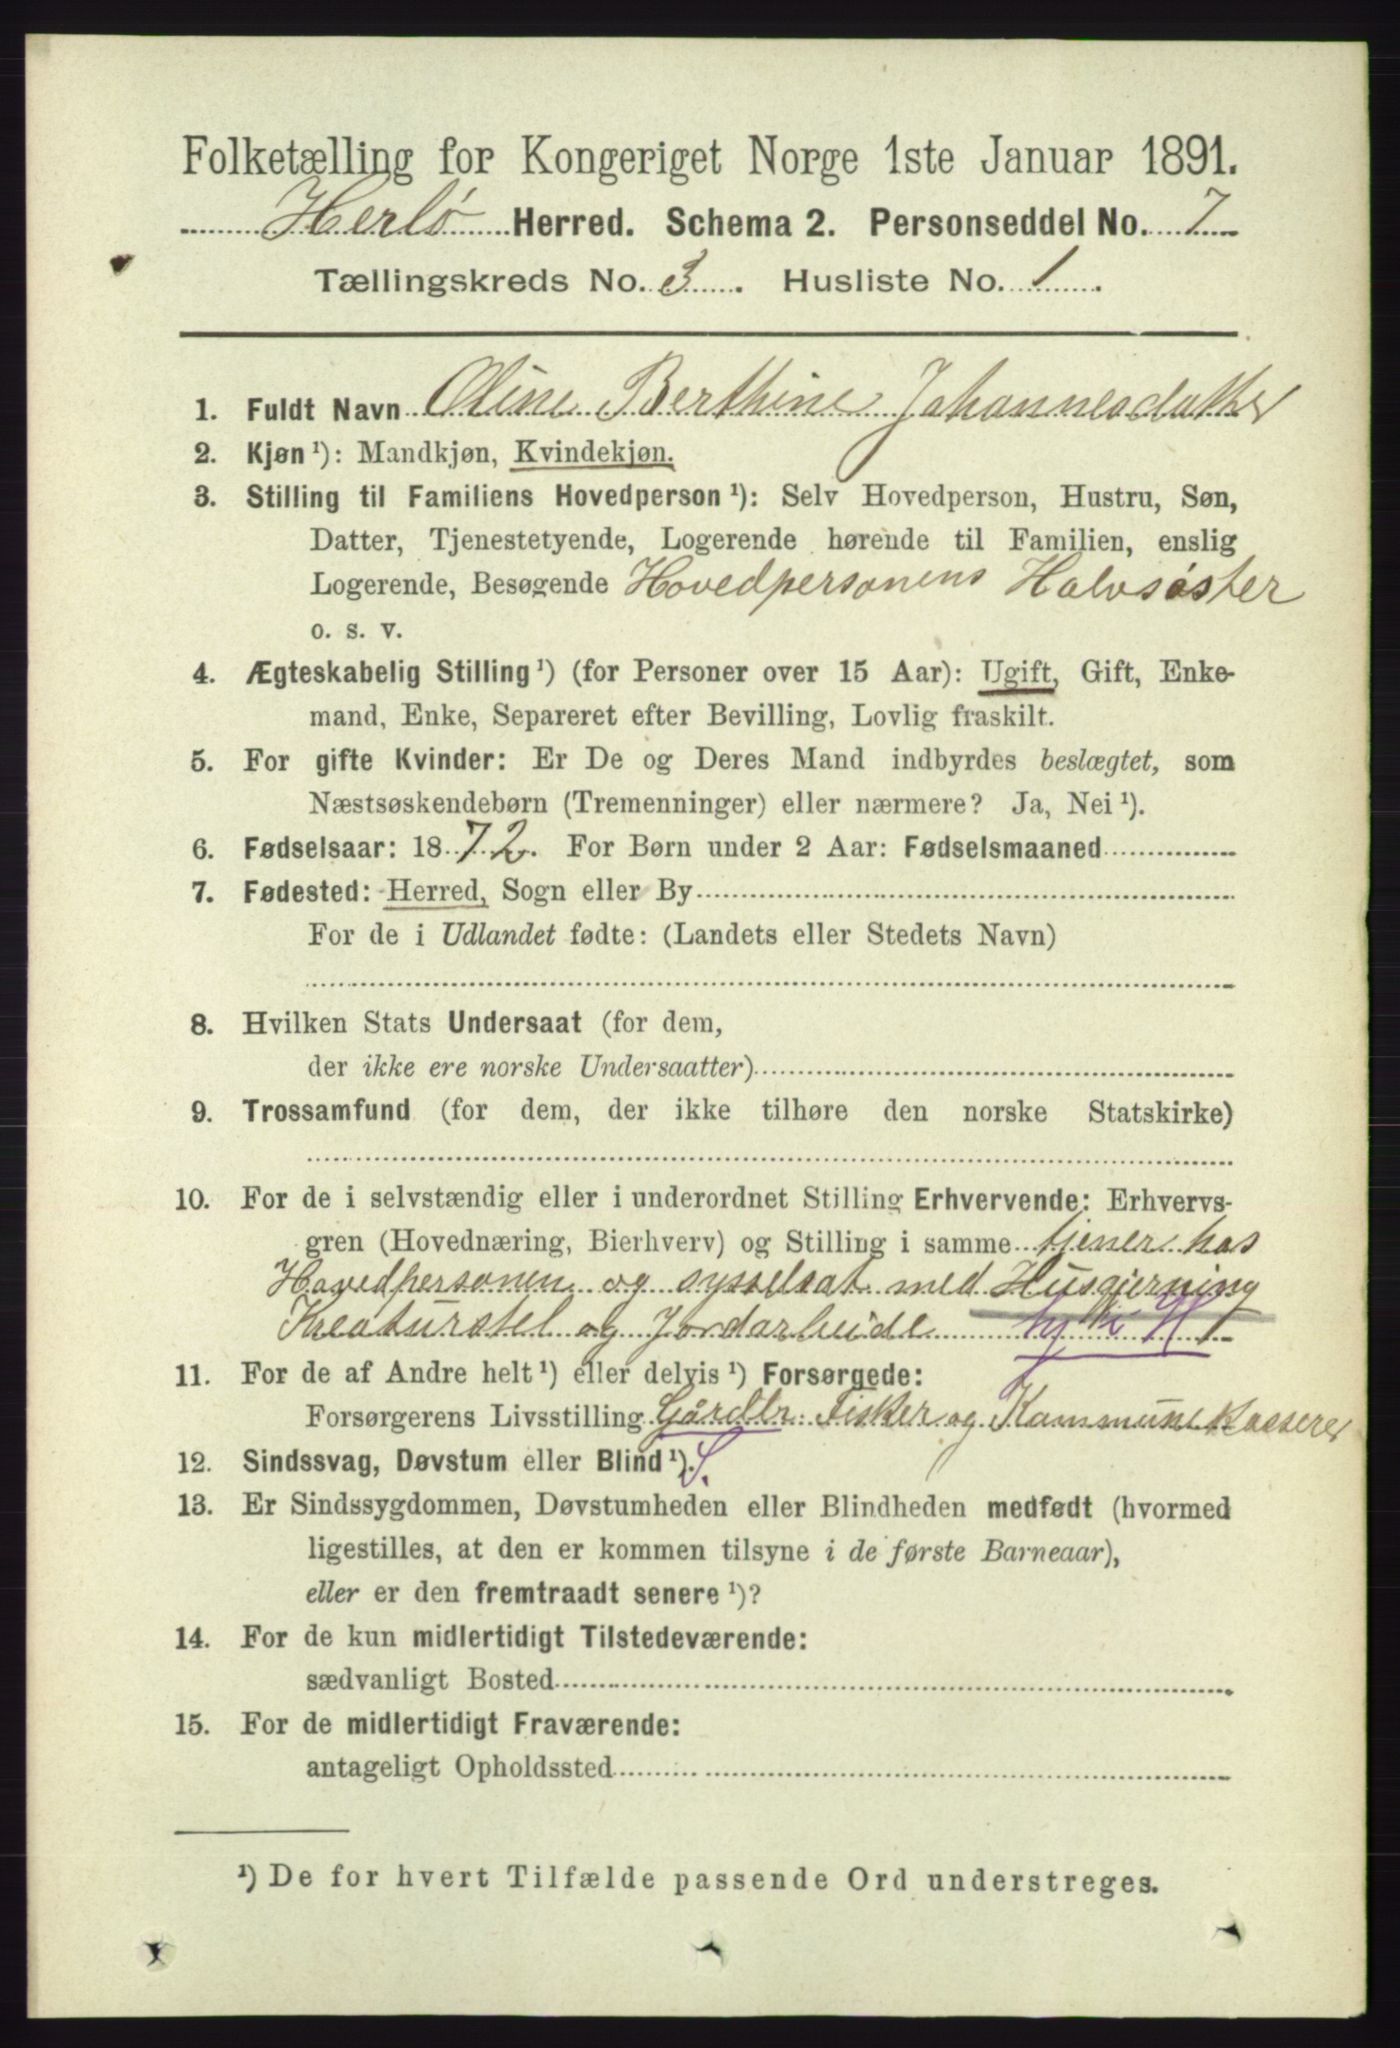 Folketælling for Kongeriget Norge 1ste Januar 1891.
Herlø Herred. Schema 2. Personseddel No. 7
Tællingskreds No. 3. Husliste No. 1.
1. Fuldt Navn Oline Berthine Johannesdatter
2. Kjøn ¹): Mandkjøn, Kvindekjøn.
3. Stilling til Familiens Hovedperson ¹): Selv Hovedperson, Hustru, Søn,
Datter, Tjenestetyende, Logerende hørende til Familien, enslig
Logerende, Besøgende Hovedpersonens Halvsøster
o. s. v.
4. Ægteskabelig Stilling ¹) (for Personer over 15 Aar): Ugift, Gift, Enke-
mand, Enke, Separeret efter Bevilling, Lovlig fraskilt.
5. For gifte Kvinder: Er De og Deres Mand indbyrdes beslægtet, som
Næstsøskendebørn (Tremenninger) eller nærmere? Ja, Nei ¹).
6. Fødselsaar: 1872. For Børn under 2 Aar: Fødselsmaaned
7. Fødested: Herred, Sogn eller By
For de i Udlandet fødte: (Landets eller Stedets Navn)
8. Hvilken Stats Undersaat (for dem,
der ikke ere norske Undersaatter)
9. Trossamfund (for dem, der ikke tilhøre den norske Statskirke)
10. For de i selvstændig eller i underordnet Stilling Erhvervende: Erhvervs-
gren (Hovednæring, Bierhverv) og Stilling i samme tjener hos
Hovedpersonen og sysselsat med Husgjerning
Kreaturstel og Jordarbeide
11. For de af Andre helt ¹) eller delvis ¹) Forsørgede:
Forsørgerens Livsstilling Gårdbr. Fisker og Kommunekasserer
12. Sindssvag, Døvstum eller Blind ¹). S.
13. Er Sindssygdommen, Døvstumheden eller Blindheden medfødt (hvormed
ligestilles, at den er kommen tilsyne i de første Barneaar),
eller er den fremtraadt senere ¹)?
14. For de kun midlertidigt Tilstedeværende:
sædvanligt Bosted
15. For de midlertidigt Fraværende:
antageligt Opholdssted
¹) De for hvert Tilfælde passende Ord understreges.